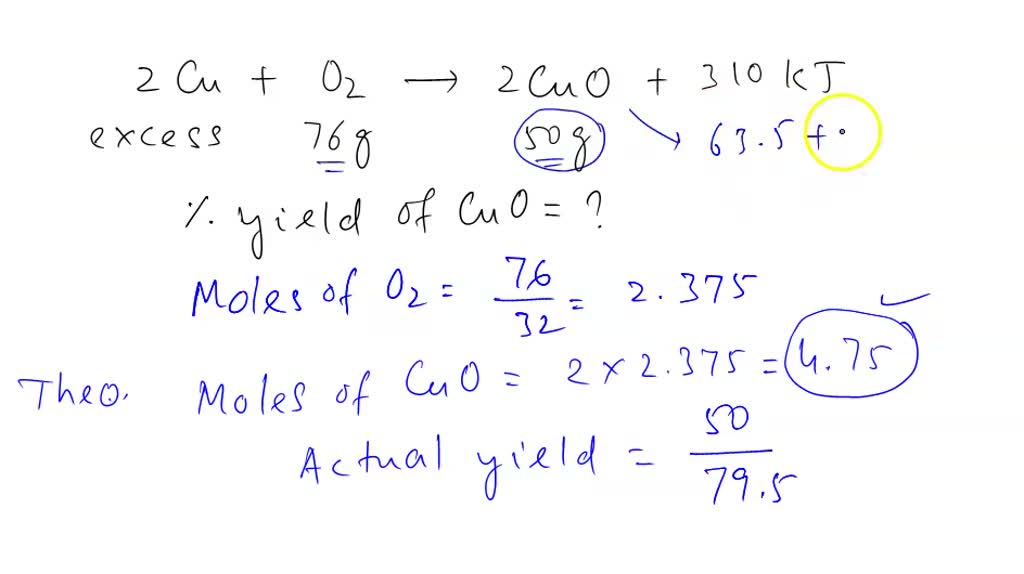 2 Cu + O2 → 2 CuO + 310 kJ
excess 76g 50g → 63.5 + ·
% yield of CuO = ?
Moles of O2 = 76/32 = 2.375 ✓
Theo. Moles of CuO = 2 × 2.375 = 4.75
Actual yield = 50/79.5